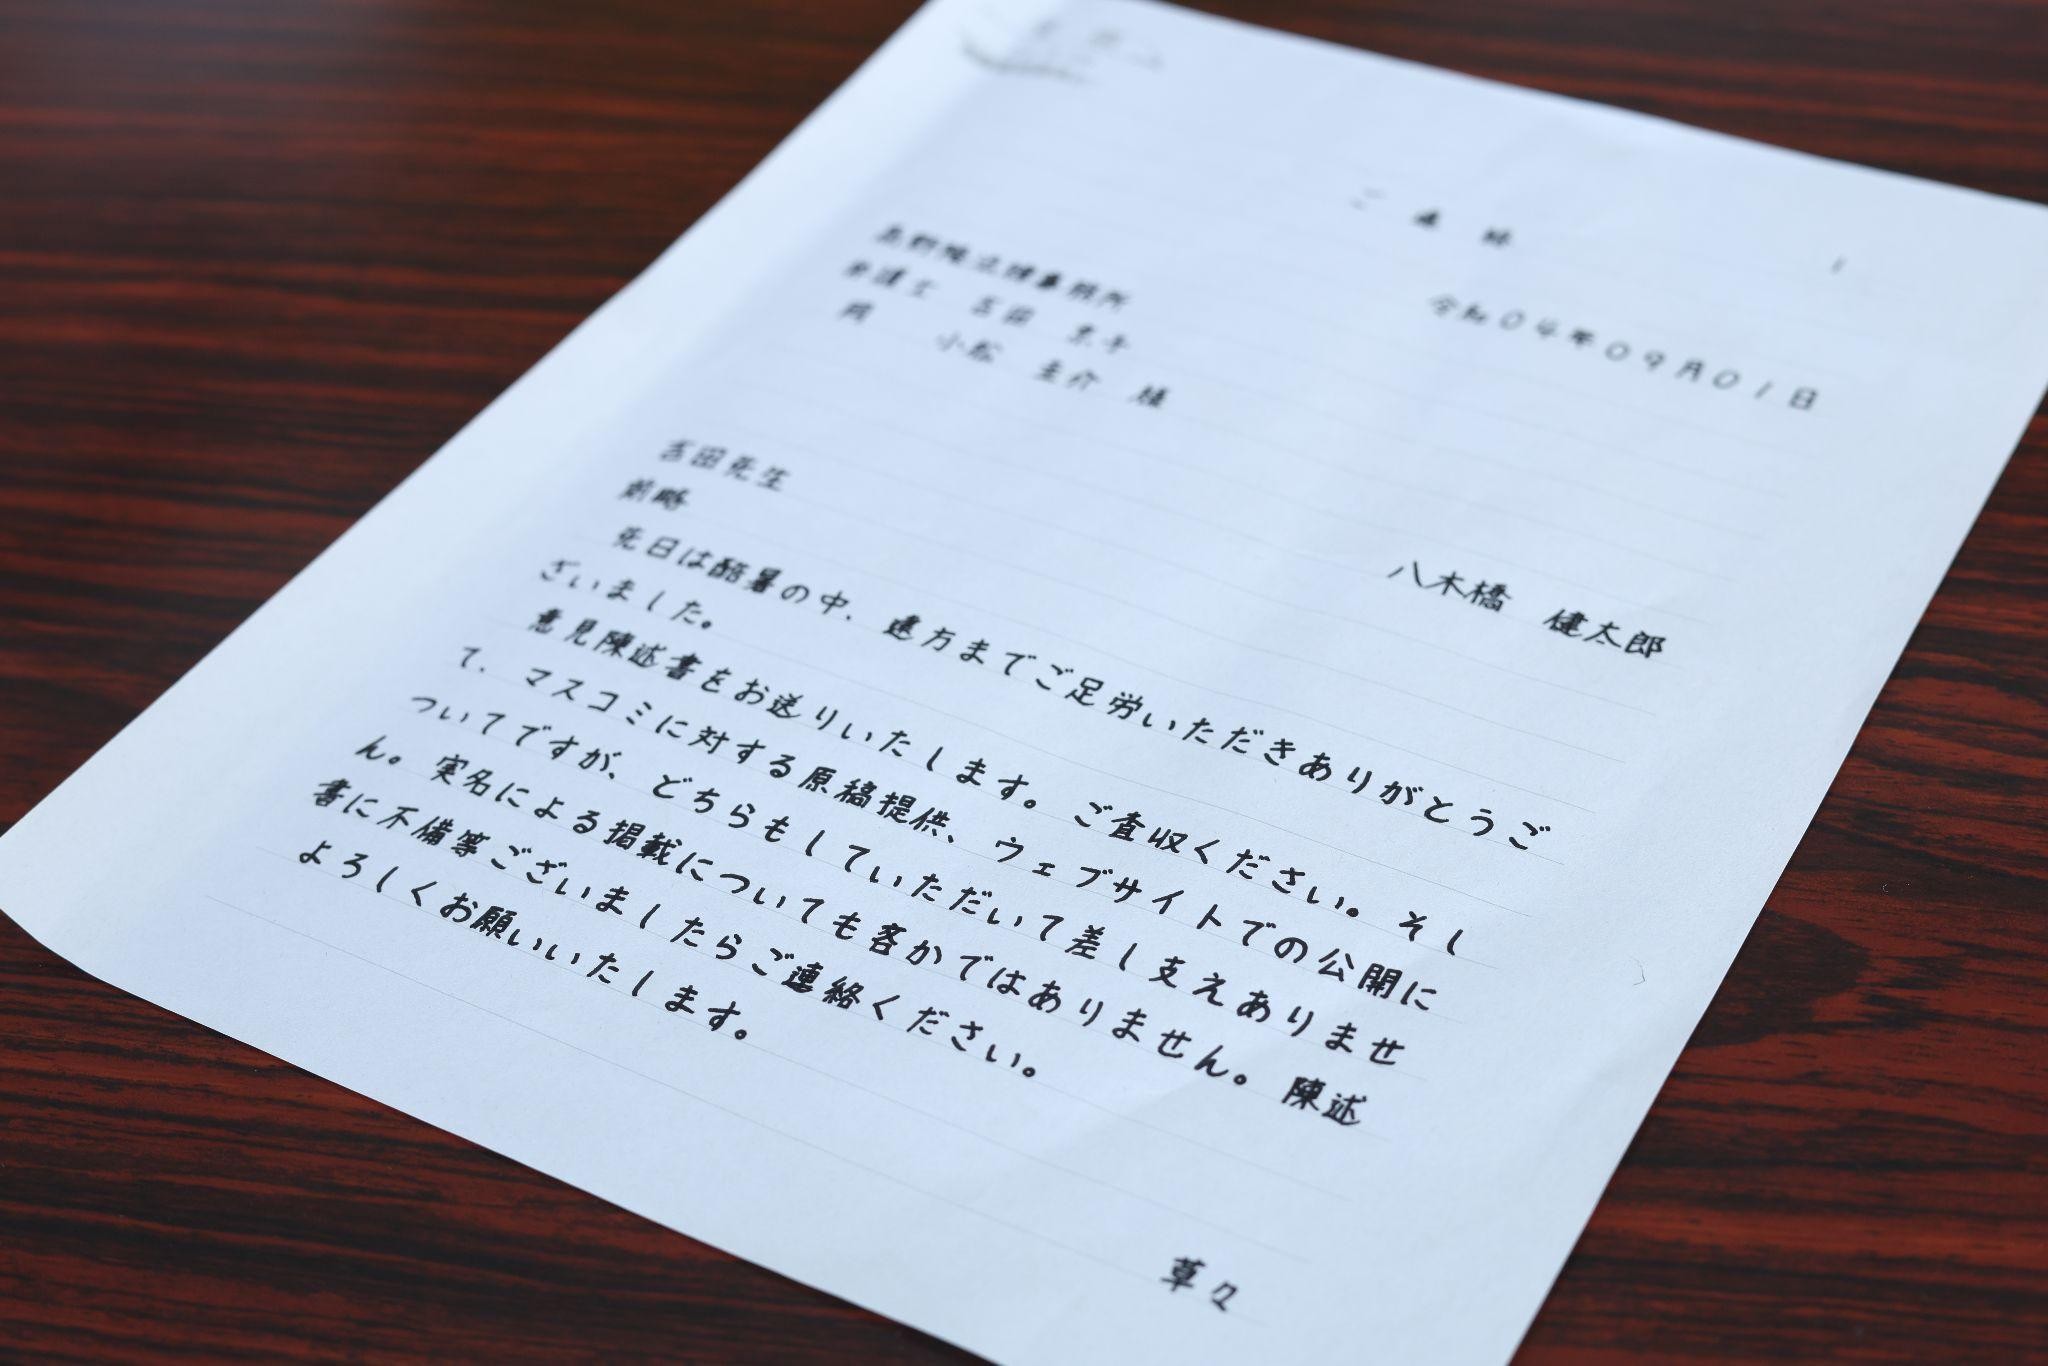 ご連絡
令和04年09月01日
高野隆法律事務所
弁護士 吉田 京子
同 小松 圭介 様
八木橋 健太郎
吉田先生
前略
先日は酷暑の中、遠方までご足労いただきありがとうご
ざいました。
意見陳述書をお送りいたします。ご査収ください。そし
て、マスコミに対する原稿提供、ウェブサイトでの公開に
ついてですが、どちらもしていただいて差し支えありませ
ん。実名による掲載についても吝かではありません。陳述
書に不備等ございましたらご連絡ください。
よろしくお願いいたします。
草々